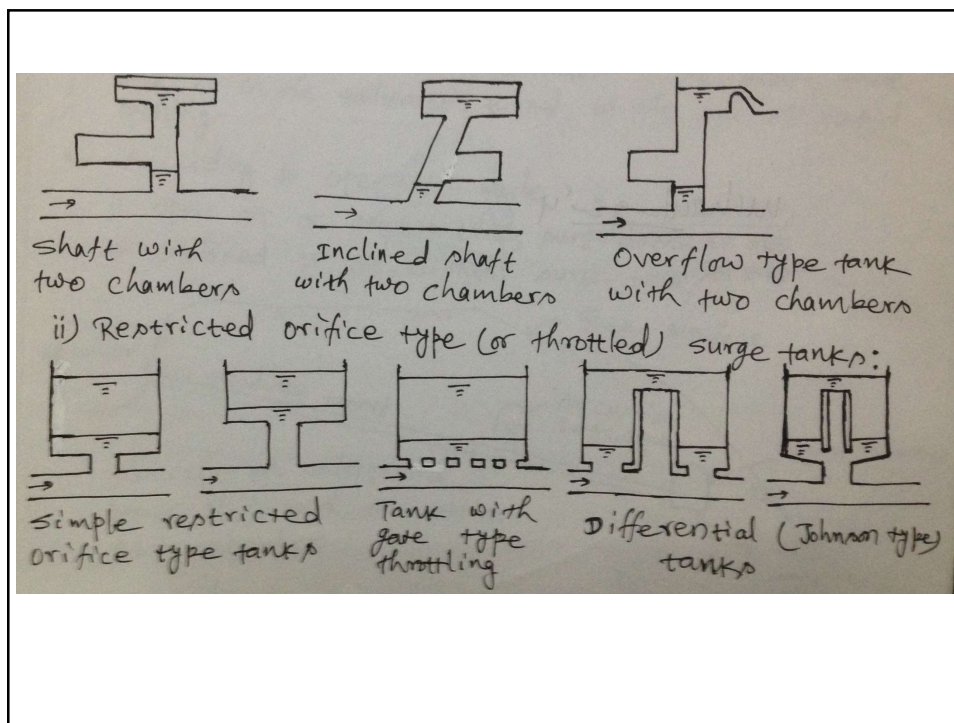 Shaft with
two chambers
Inclined shaft
with two chambers
Overflow type tank
with two chambers
ii) Restricted orifice type (or throttled) surge tanks:
Simple restricted
orifice type tanks
Tank with
gate type
throttling
Differential (Johnson type)
tanks